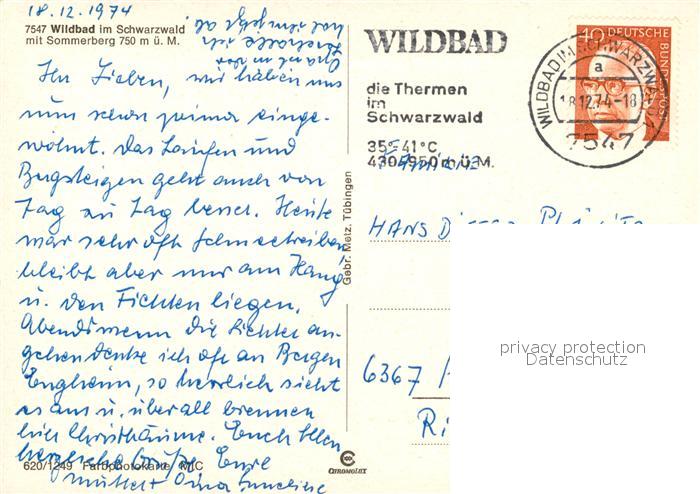 18.12.1974
7547 Wildbad im Schwarzwald
mit Sommerberg 750 m ü. M.
Ihr Lieben, wir haben uns
nun schon prima einge-
wöhnt. Das Laufen und
Bergsteigen geht auch von
Tag zu Tag besser. Heute
war sehr oft Schneetreiben
bleibt aber nur am Hang
u. den Fichten liegen.
Abends wenn die Lichter an-
gehen denke ich oft an Bergen
Enkheim, so herrlich sieht
es aus u. überall brennen
die Christbäume. Euch allen
herzliche Grüße Eure
Mutter Oma
620/1249 Farbphotokarte MIC
Gebr. Metz, Tübingen
CHROMOLUX
WILDBAD
die Thermen
im
Schwarzwald
35°-41°C
430-950 m ü. M.
40 DEUTSCHE
BUNDESPOST
WILDBAD IM SCHWARZWALD
a
18.12.74-18
7547
FAMILIE
HANS DIETER
6367
privacy protection
Datenschutz